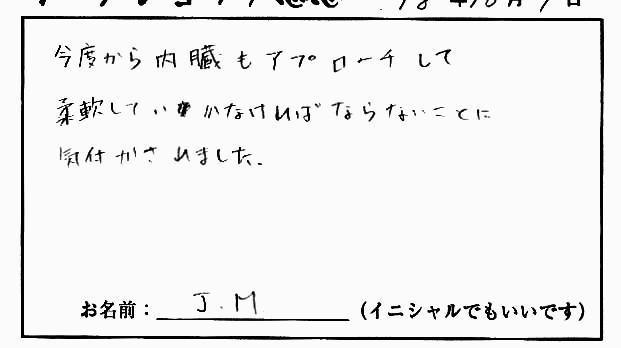 今度から内臓もアプローチして
柔軟していかなければならないことに
気付かされました。
お名前： J.M （イニシャルでもいいです）